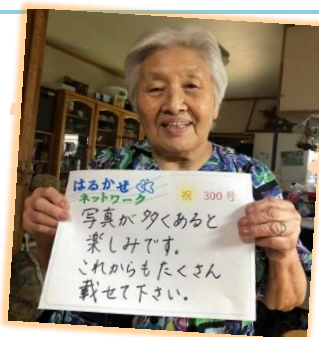 はるかぜ
ネットワーク 祝 300号
写真が多くあると
楽しみです。
これからもたくさん
載せて下さい。